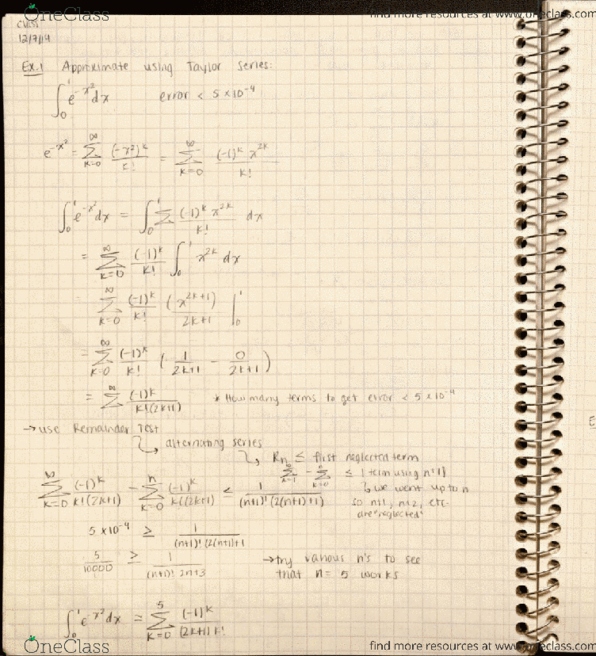 OneClass
find more resources at www.oneclass.com
12/7/19
Ex.1 Approximate using Taylor Series:
∫₀¹ e^(-x²) dx error < 5 x 10^-4
e^(-x²) = ∑_(k=0)^∞ (-x²)^k / k! = ∑_(k=0)^∞ (-1)^k x^(2k) / k!
∫₀¹ e^(-x²) dx = ∫₀¹ ∑ (-1)^k x^(2k) / k! dx
= ∑_(k=0)^∞ (-1)^k / k! ∫₀¹ x^(2k) dx
∑_(k=0)^∞ (-1)^k / k! (x^(2k+1) / 2k+1 |₀¹
= ∑_(k=0)^∞ (-1)^k / k! (1 / 2k+1 - 0 / 2k+1)
= ∑_(k=0)^∞ (-1)^k / k!(2k+1) * How many terms to get error < 5 x 10^-4
→ use Remainder Test
↳ alternating series
↳ Rn ≤ first neglected term
∑ - ∑ ≤ |term using n+1|
∑_(k=0)^∞ (-1)^k / k!(2k+1) - ∑_(k=0)^n (-1)^k / k!(2k+1) ≤ 1 / (n+1)!(2(n+1)+1)
↳ we went up to n
so n+1, n+2, etc.
are "neglected"
5 x 10^-4 ≥ 1 / (n+1)!(2(n+1)+1
5 / 10000 ≥ 1 / (n+1)! 2n+3 → try various n's to see
that n = 5 works
∫₀¹ e^(-x²) dx = ∑_(k=0)^5 (-1)^k / (2k+1) k!
OneClass
find more resources at www.oneclass.com